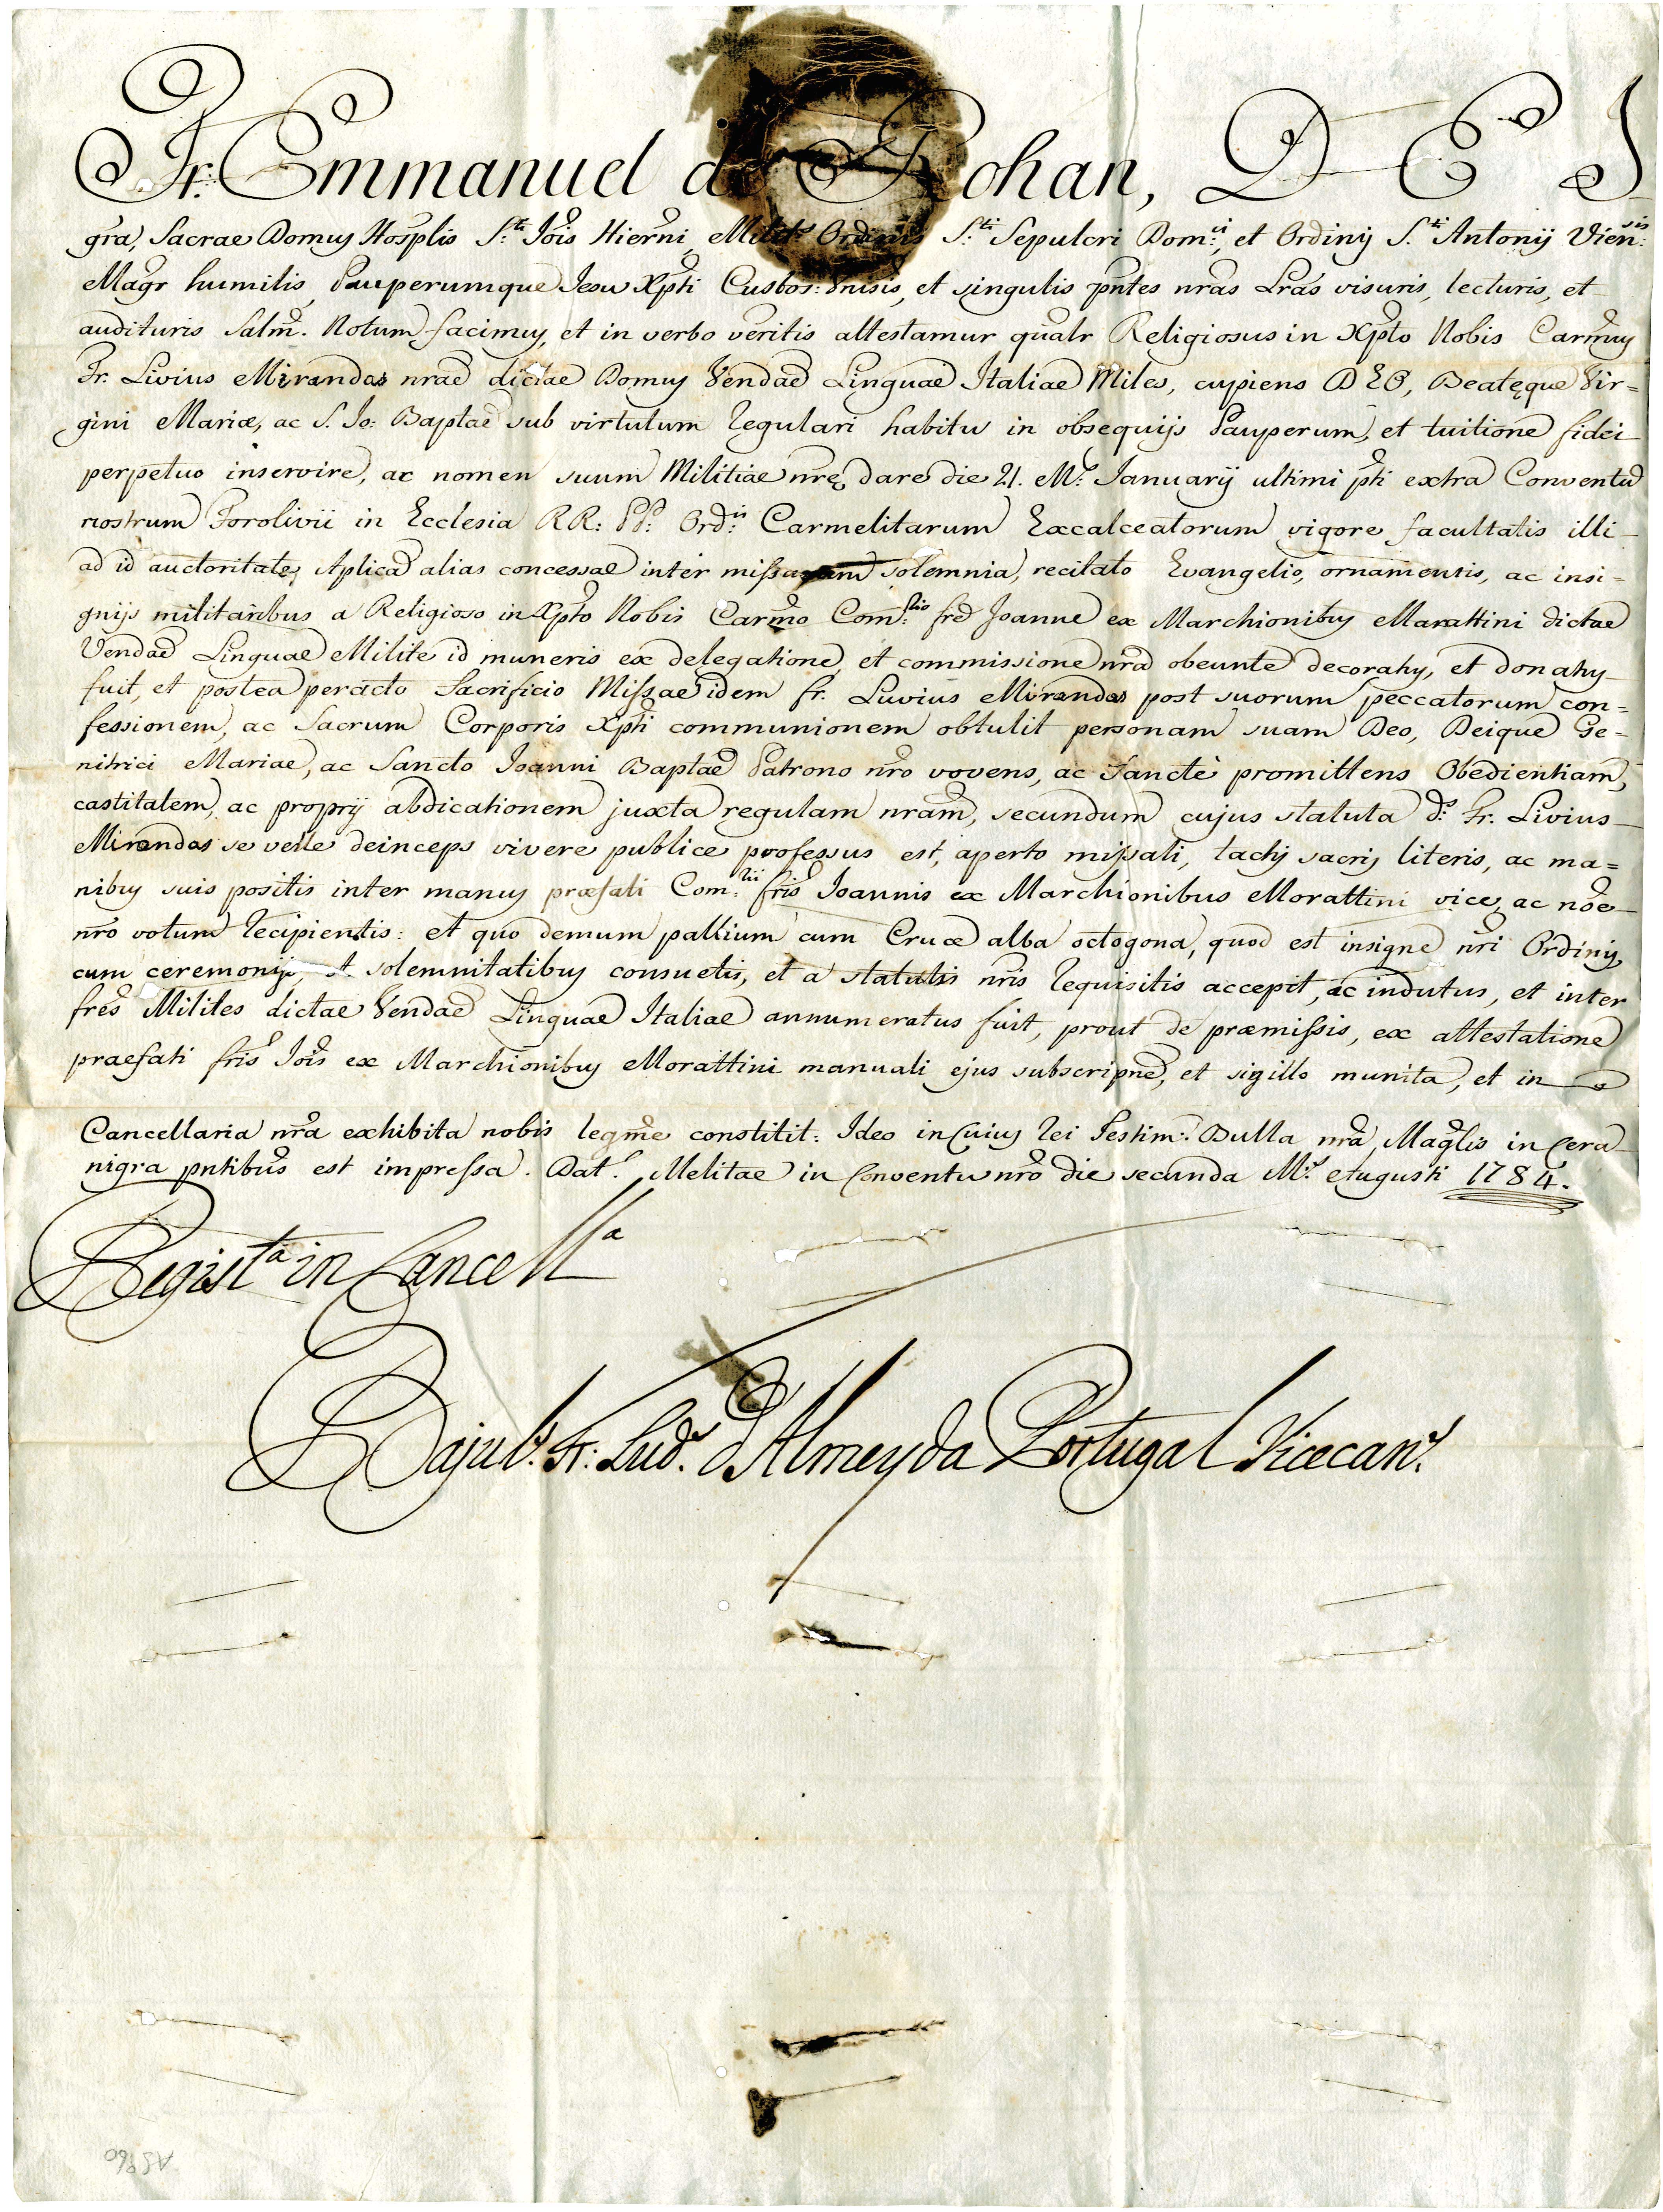 Fr. Emmanuel de Rohan, D E I
gra, Sacrae Domus Hosplis S.ti Jois Hierni, Milit.s Ordinis S.ti Sepulcri Dom.ci, et Ordinis S.ti Antonij Vien.sis
Magr humilis, Pauperumque Jesu Xpti Custos: Vnisis, et singulis pntes nras Lras visuris, lecturis, et
audituris Salm. Notum facimus, et in verbo veritis attestamur qualr Religiosus in Xpto Nobis Carmus
Fr. Livius Mirandas nrae dictae Domus Vendae Linguae Italiae Miles, cupiens DEO, Beatęque Vir=
gini Mariæ, ac S. Jo: Baptae sub virtutum regulari habitu in obsequijs Pauperum, et tuitione fidei
perpetuo inservire, ac nomen suum Militiae nrę dare die 21. M.s Januarij ultimi pti extra Conventu
nostrum Forolivii in Ecclesia RR: PP: Ord.is Carmelitarum Excalceatorum vigore facultatis illi
ad id auctoritate Aplica alias concessae inter missarum solemnia, recitato Evangelio, ornamentis, ac insi=
gnijs militaribus a Religioso in Xpto Nobis Carmo Com.rio fre Joanne ex Marchionibus Marattini dictae
Vendae Linguae Milite id muneris ex delegatione, et commissione nra obeunte decoratus, et donatus
fuit, et postea peracto Sacrificio Missae idem fr. Luvius Mirandas post suorum peccatorum con=
fessionem, ac Sacrum Corporis Xpti communionem obtulit personam suam Deo, Deique Ge=
nitrici Mariae, ac Sancto Joanni Baptae Patrono nro vovens, ac sanctè promittens Obedientiam,
castitatem, ac proprij abdicationem juxta regulam nram, secundum cujus statuta d.s Fr. Livius
Mirandas se velle deinceps vivere publice professus est, aperto missali, tactis sacris literis, ac ma=
nibus suis positis inter manus præfati Com.rii fris Joannis ex Marchionibus Morattini vice, ac noe
nro votum recipientis: et quo demum pallium cum Cruce alba octogona, quod est insigne nri Ordinis,
cum ceremonijs, et solemnitatibus consuetis, et a statutis nris requisitis accepit, ac indutus, et inter
fres Milites dictae Vendae Linguae Italiae annumeratus fuit, prout de præmissis, ex attestatione
praefati fris Jois ex Marchionibus Morattini manuali ejus subscripne, et sigillo munita, et in
Cancellaria nra exhibita nobis legme constitit: Ideo in Cuius rei Testim: Bulla nra Maglis in cera
nigra pntibus est impressa. Dat. Melitae in Conventu nro die secunda M.s Augusti 1784.
Regist.ta in Cancell.a
Bajul.s Fr: Lud.s d'Almeyda Portugal Vicecan.s
AS960